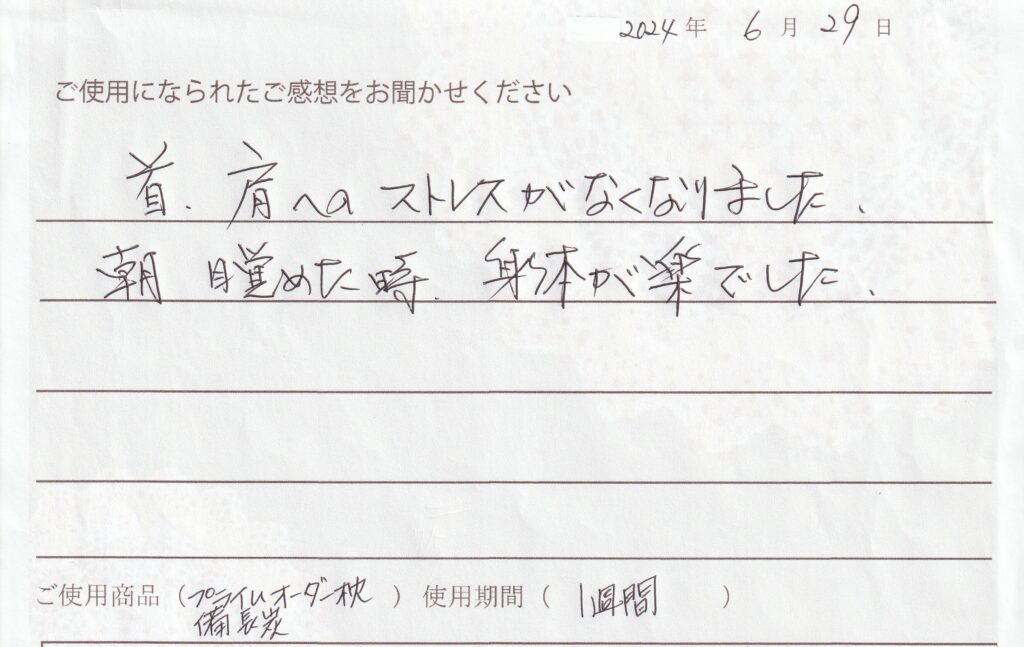 2024年 6月 29日
ご使用になられたご感想をお聞かせください
首、肩へのストレスがなくなりました。
朝 目覚めた時、身体が楽でした。
ご使用商品（プライムオーダー枕 備長炭）使用期間（1週間）